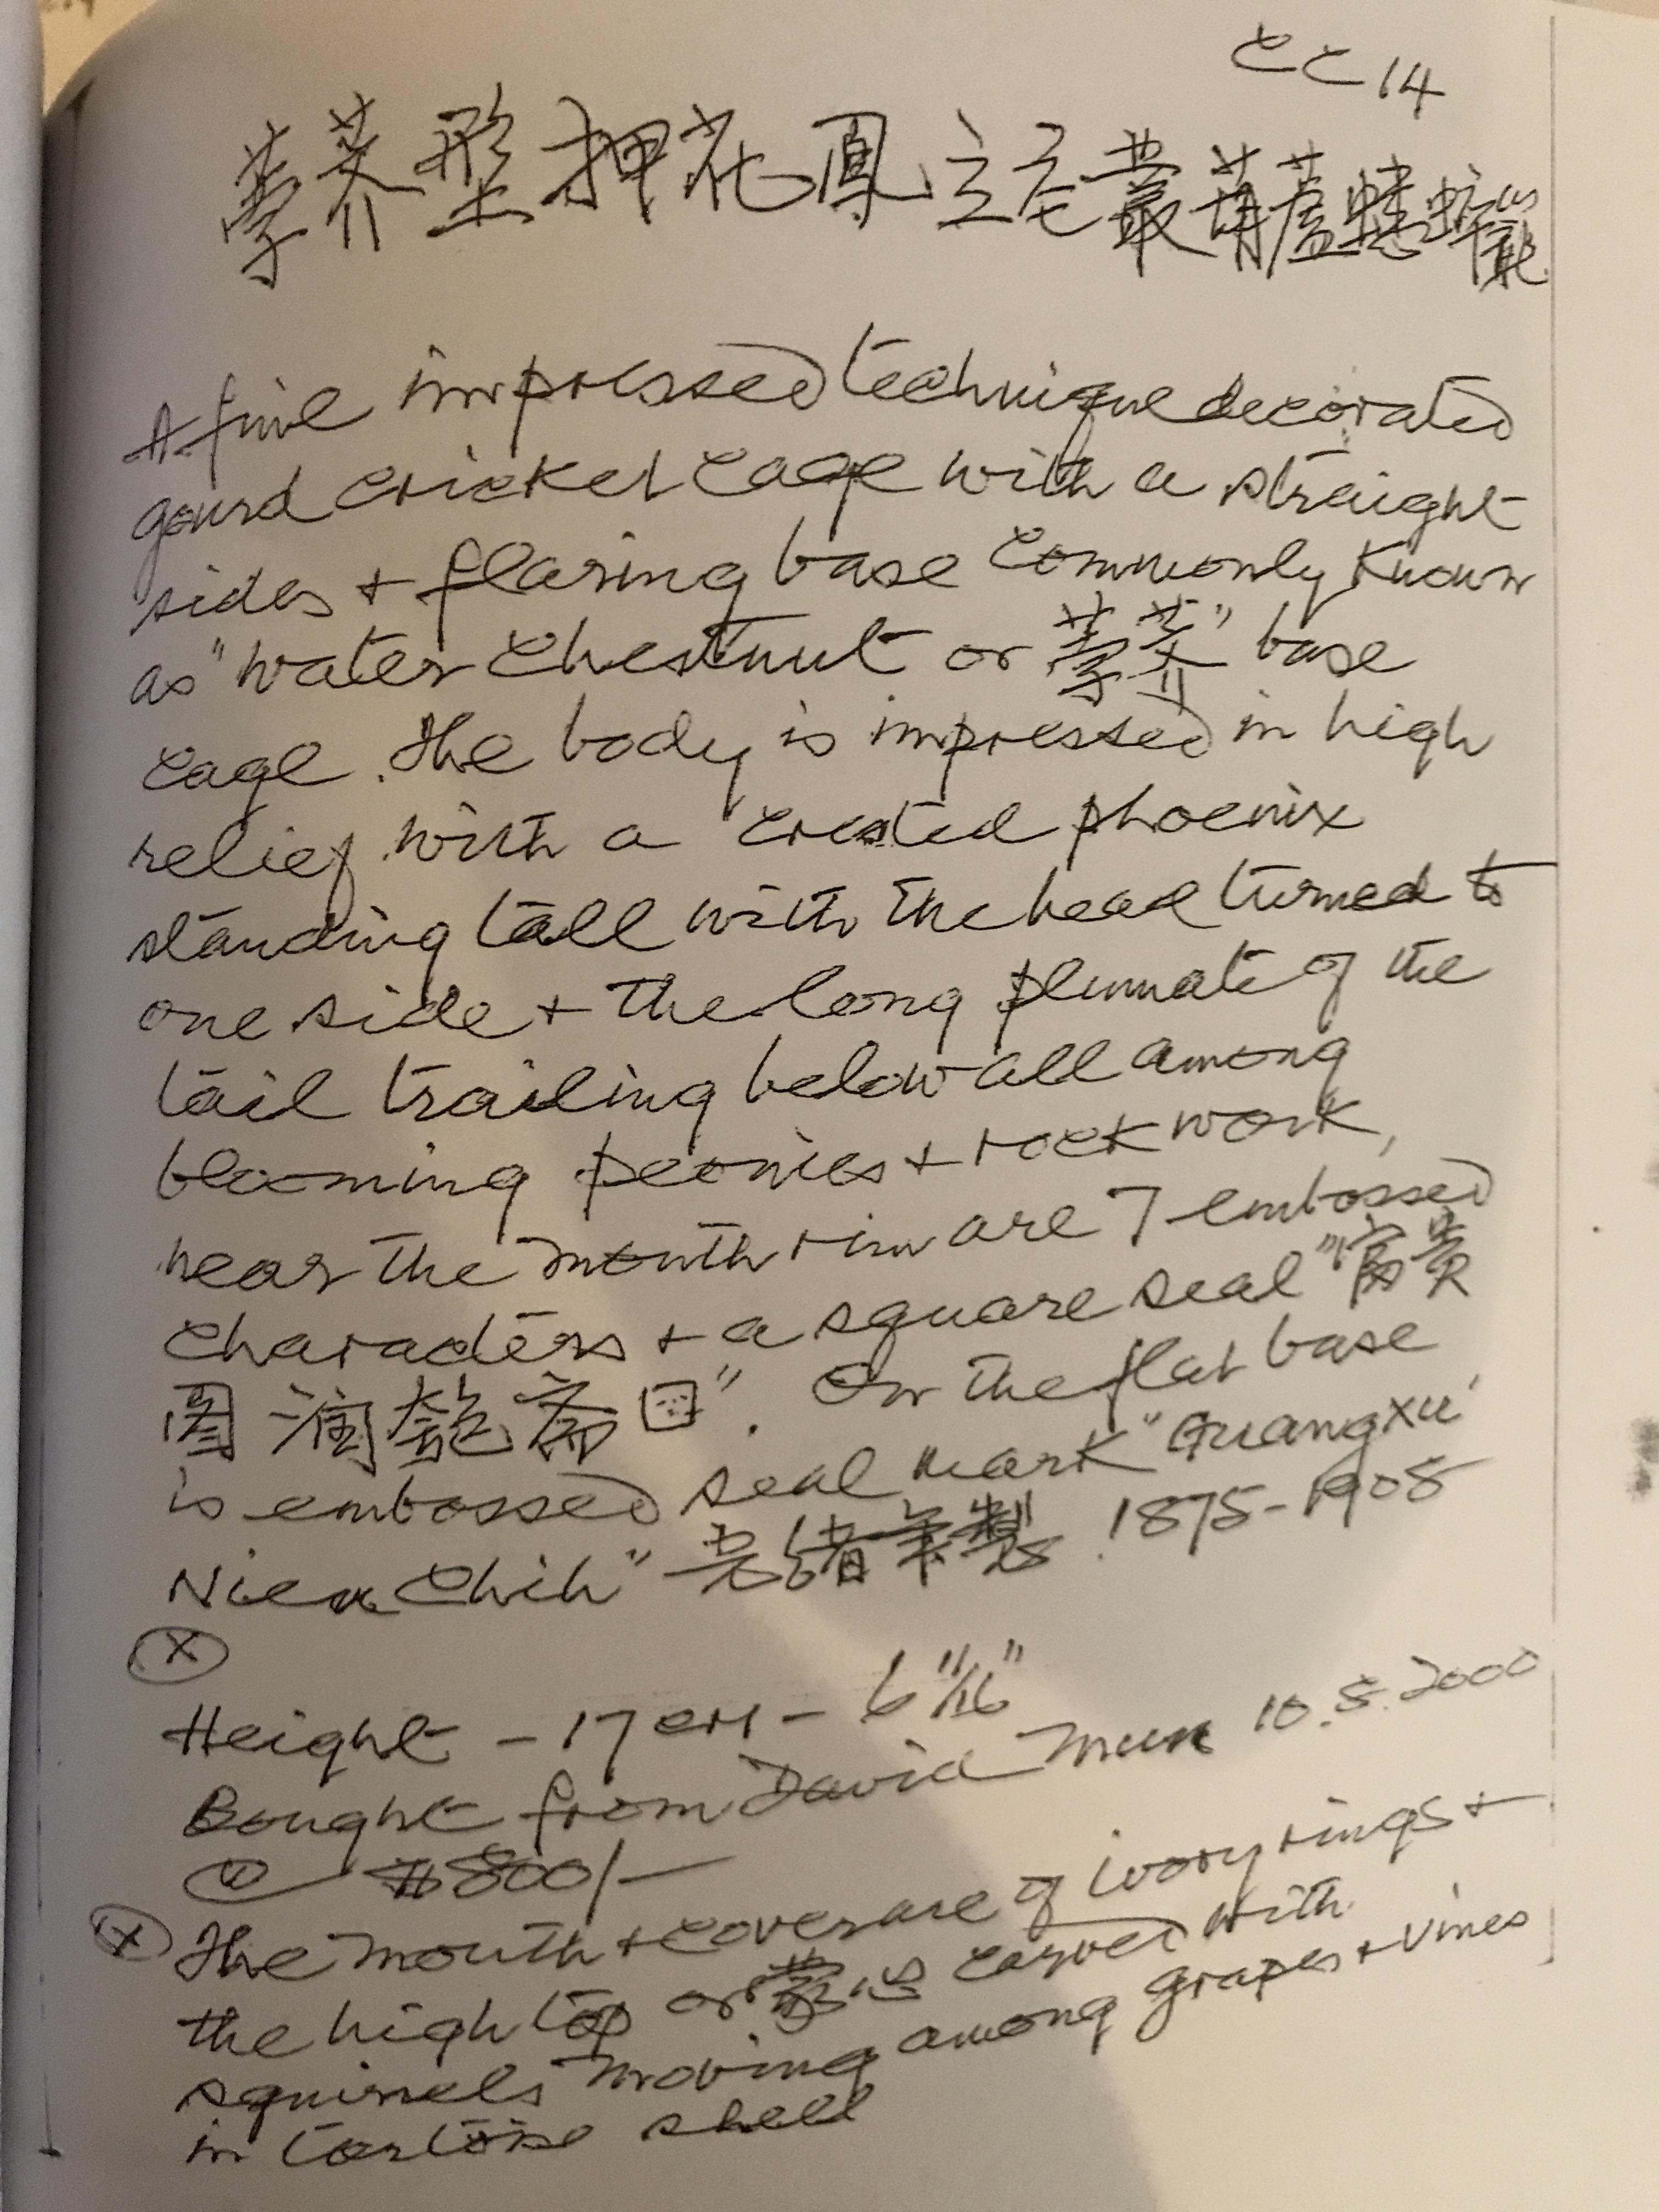 CC 14
荸荠型押花鳳立花叢葫蘆蟋蟀罐
A fine impressed technique decorated
gourd cricket cage with a straight
sides + flaring base commonly known
as "water chestnut or 荸荠" base
cage. The body is impressed in high
relief with a crested phoenix
standing tall with the head turned to
one side + the long plumate of the
tail trailing below all among
blooming peonies + rockwork,
near the mouth rim are 7 embossed
characters + a square seal "富贵
图 润 齋
". On the flat base
is embossed seal mark "Guangxu
Nien Chih" 光緒年製. 1875-1908
X
Height - 17 cm - 6 11/16"
Bought from David Mun 10.5.2000
@ $800/-
X The mouth + cover are of ivory rings +
the high top or 蒙心 carved with
squirrels moving among grapes + vines
in tortoise shell